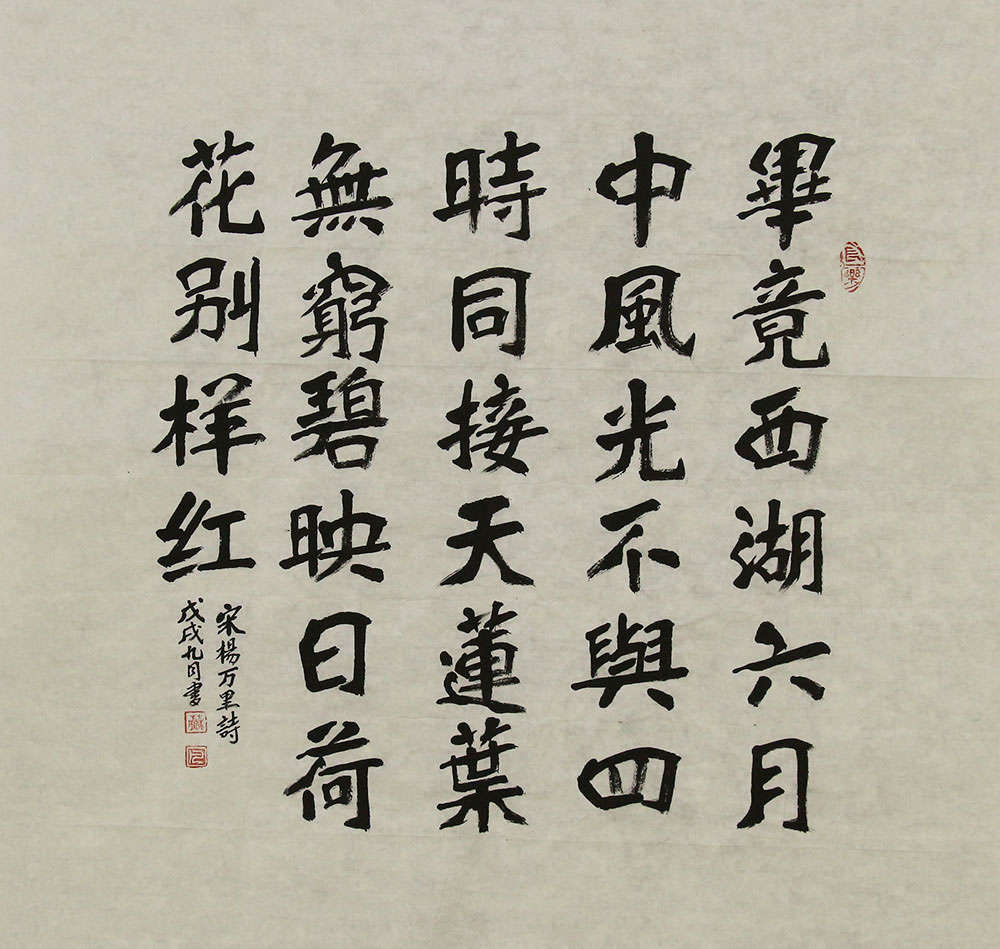 畢竟西湖六月
中風光不與四
時同接天蓮葉
無窮碧映日荷
花别样红
宋楊万里詩
戊戌九月書